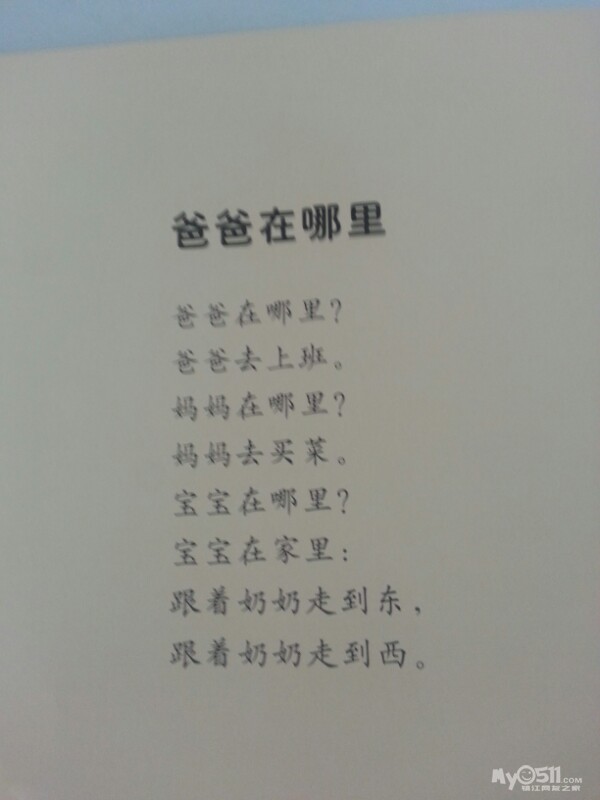 爸爸在哪里
爸爸在哪里?
爸爸去上班。
妈妈在哪里?
妈妈去买菜。
宝宝在哪里?
宝宝在家里:
跟着奶奶走到东,
跟着奶奶走到西。
My0511.com
镇江网友之家